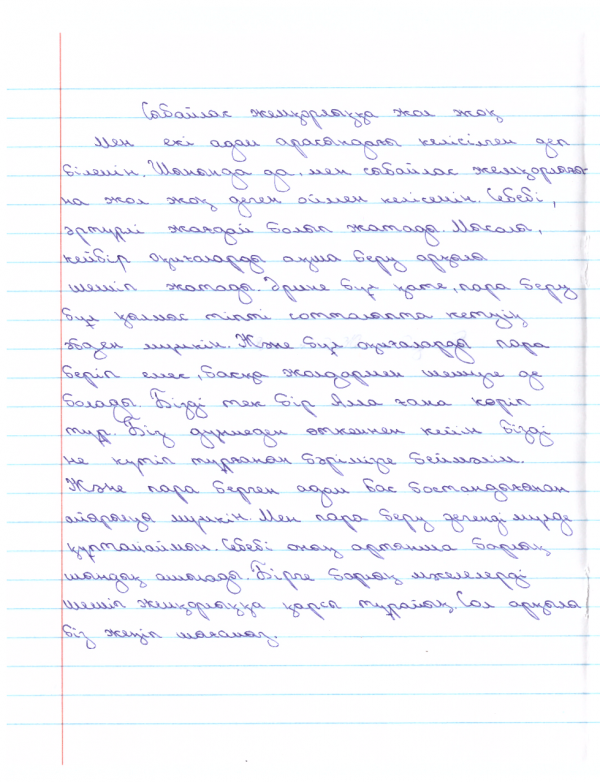 Сыбайлас жемқорлыққа жол жоқ
Мен екі адам арасындағы келісілген деп
білемін. Шынында да, мен сыбайлас жемқорлығы-
на жол жоқ деген оймен келісемін. Себебі,
әртүрлі жағдай болып жатады. Мысалы,
кейбір оқиғаларды ақша беру арқылы
шешіп жатады. Әрине бұл қате, пара беру
бұл қылмыс тіпті сотталыпта кетуің
әбден мүмкін. Және бұл оқиғаларды пара
беріп емес, басқа жолдармен шешуге де
болады. Бізді тек бір Алла ғана көріп
тұр. Біз дүниеден өткеннен кейін бізді
не күтіп тұрғанын бәрімізге беймәлім.
Және пара берген адам бас бостандығынан
айырылуы мүмкін. Мен пара беру дегенді мүлде
құптамаймын. Себебі оның артынша барлық
шындық ашылады. Бірге барлық мәселелерді
шешіп жемқорлыққа қарсы тұрайық. Сол арқылы
біз жеңіп шығамыз.